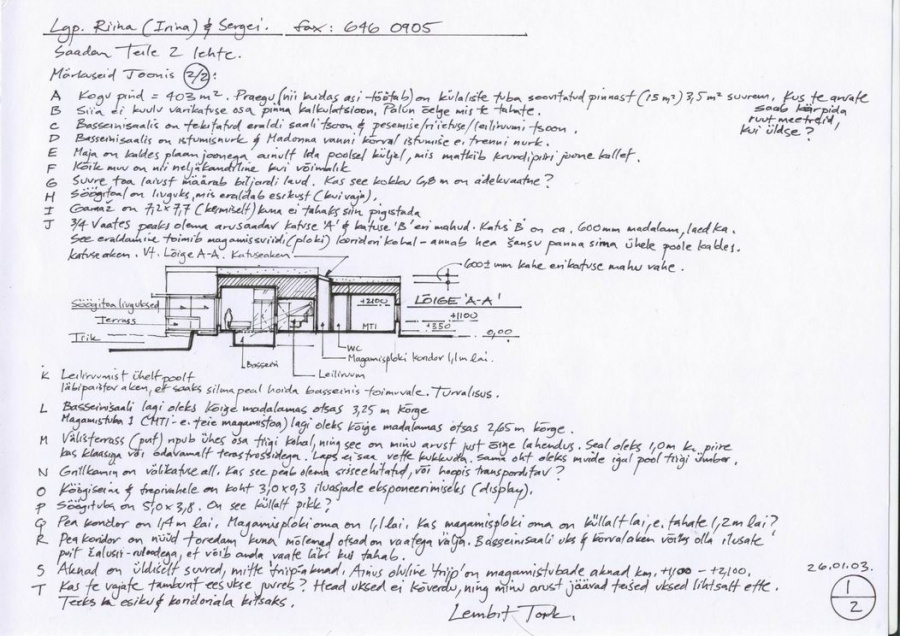 Lgp. Riina (Irina) & Sergei. fax: 646 0905
Saadan Teile 2 lehte.
Märkuseid Joonis 2/2:
A Kogu pind = 403 m². Praegu (nii kuidas asi töötab) on külaliste tuba soovitatud pinnast (15 m²) 3,5 m² suurem, Kus te arvate
saab kärpida
ruutmeetreid,
kui üldse?
B Siia ei kuulu varikatuse osa pinna kalkulatsioon. Palun öelge mis te tahate.
C Basseinisaalis on tekitatud eraldi saali tsoon & pesemise/riietuse/leiliruumi tsoon.
D Basseinisaalis on istumisnurk & Madonna vanni kõrval istumise e. trenni nurk.
E Maja on kaldes plaan joonega ainult Ida poolsel küljel, mis matkib krundipiiri joone kallet.
F Kõik muu on nelikandiline kui võimalik
G Suure toa laiust määrab biljardi laud. Kas see kokku 6,8 m on adekvaatne?
H Söögitoal on liuguks, mis eraldab esikust (kui vaja).
I Garaaž on 7,2 x 7,7 kuna ei tahaks siin pigistada
J 3/4 Vaates peaks olema arusaadav katuse 'A' & katuse 'B' eri mahud. Katus 'B' on ca. 600mm madalam, laed ka.
See eraldamine toimib magamis (ploki) koridori kohal - annab hea šansu panna sinna ühele poole kaldes.
katuseaken. Vt. Lõige A-A. Katuseaken
600± mm kahe eri katuse mahu vahe.
LÕIGE 'A-A'
Söögitoa liuguksed
Terrass
Tiik
+2100
+1100
+350
0,00
MT1
WC
Magamisploki koridor 1,1m lai.
Bassein
Leiliruum
K Leiliruumist ühelt poolt
läbipaistev aken, et saaks silma peal hoida basseinis toimuvale. Turvalisus.
L Basseinisaali lagi oleks kõige madalamas otsas 3,25 m kõrge
Magamistuba 1 (MT1 - e. teie magamistoa) lagi oleks kõige madalamas otsas 2,65 m kõrge.
M Välisterrass (puit) ripub ühes osa tiigi kohal, ning see on minu arust just õige lahendus. Seal oleks 1,0m k. piire
kas klaasiga või odavamalt terastrossidega. Laps ei saa vette kukkuda. Sama oht oleks muide igal pool tiigi ümber.
N Grillkamin on välikatuse all. Kas see peak olema sisseehitatud, või hoopis transporditav?
O Köögiseina & trepi vahele on koht 3,0 x 0,3 iluasjade eksponeerimiseks (display).
P Söögituba on 5,0 x 3,8. On see küllalt pikk?
Q Pea koridor on 1,4 m lai. Magamisploki oma on 1,1 lai. Kas magamisploki oma on küllalt lai, e. tahate 1,2 m lai?
R Pea koridor on nüüd toredam kuna mõlemad otsad on vaatega välja. Basseinisaali uks & kõrvalaken võiks olla ilusate
puit žalusii-ruloodega, et võib anda vaate läbi kui tahab.
S Aknad on üldiselt suured, mitte 'triip'-aknad. Ainus oluline 'triip' on magamistubade aknad km. +1,100 - +2,100.
T Kas te vajate tamburit eesukse juures? Head uksed ei kõverdu, ning minu arust jäävad teised uksed lihtsalt ette.
Teeks ka esiku & koridoriala kitsaks.
26.01.03.
1/2
Lembit Tork.